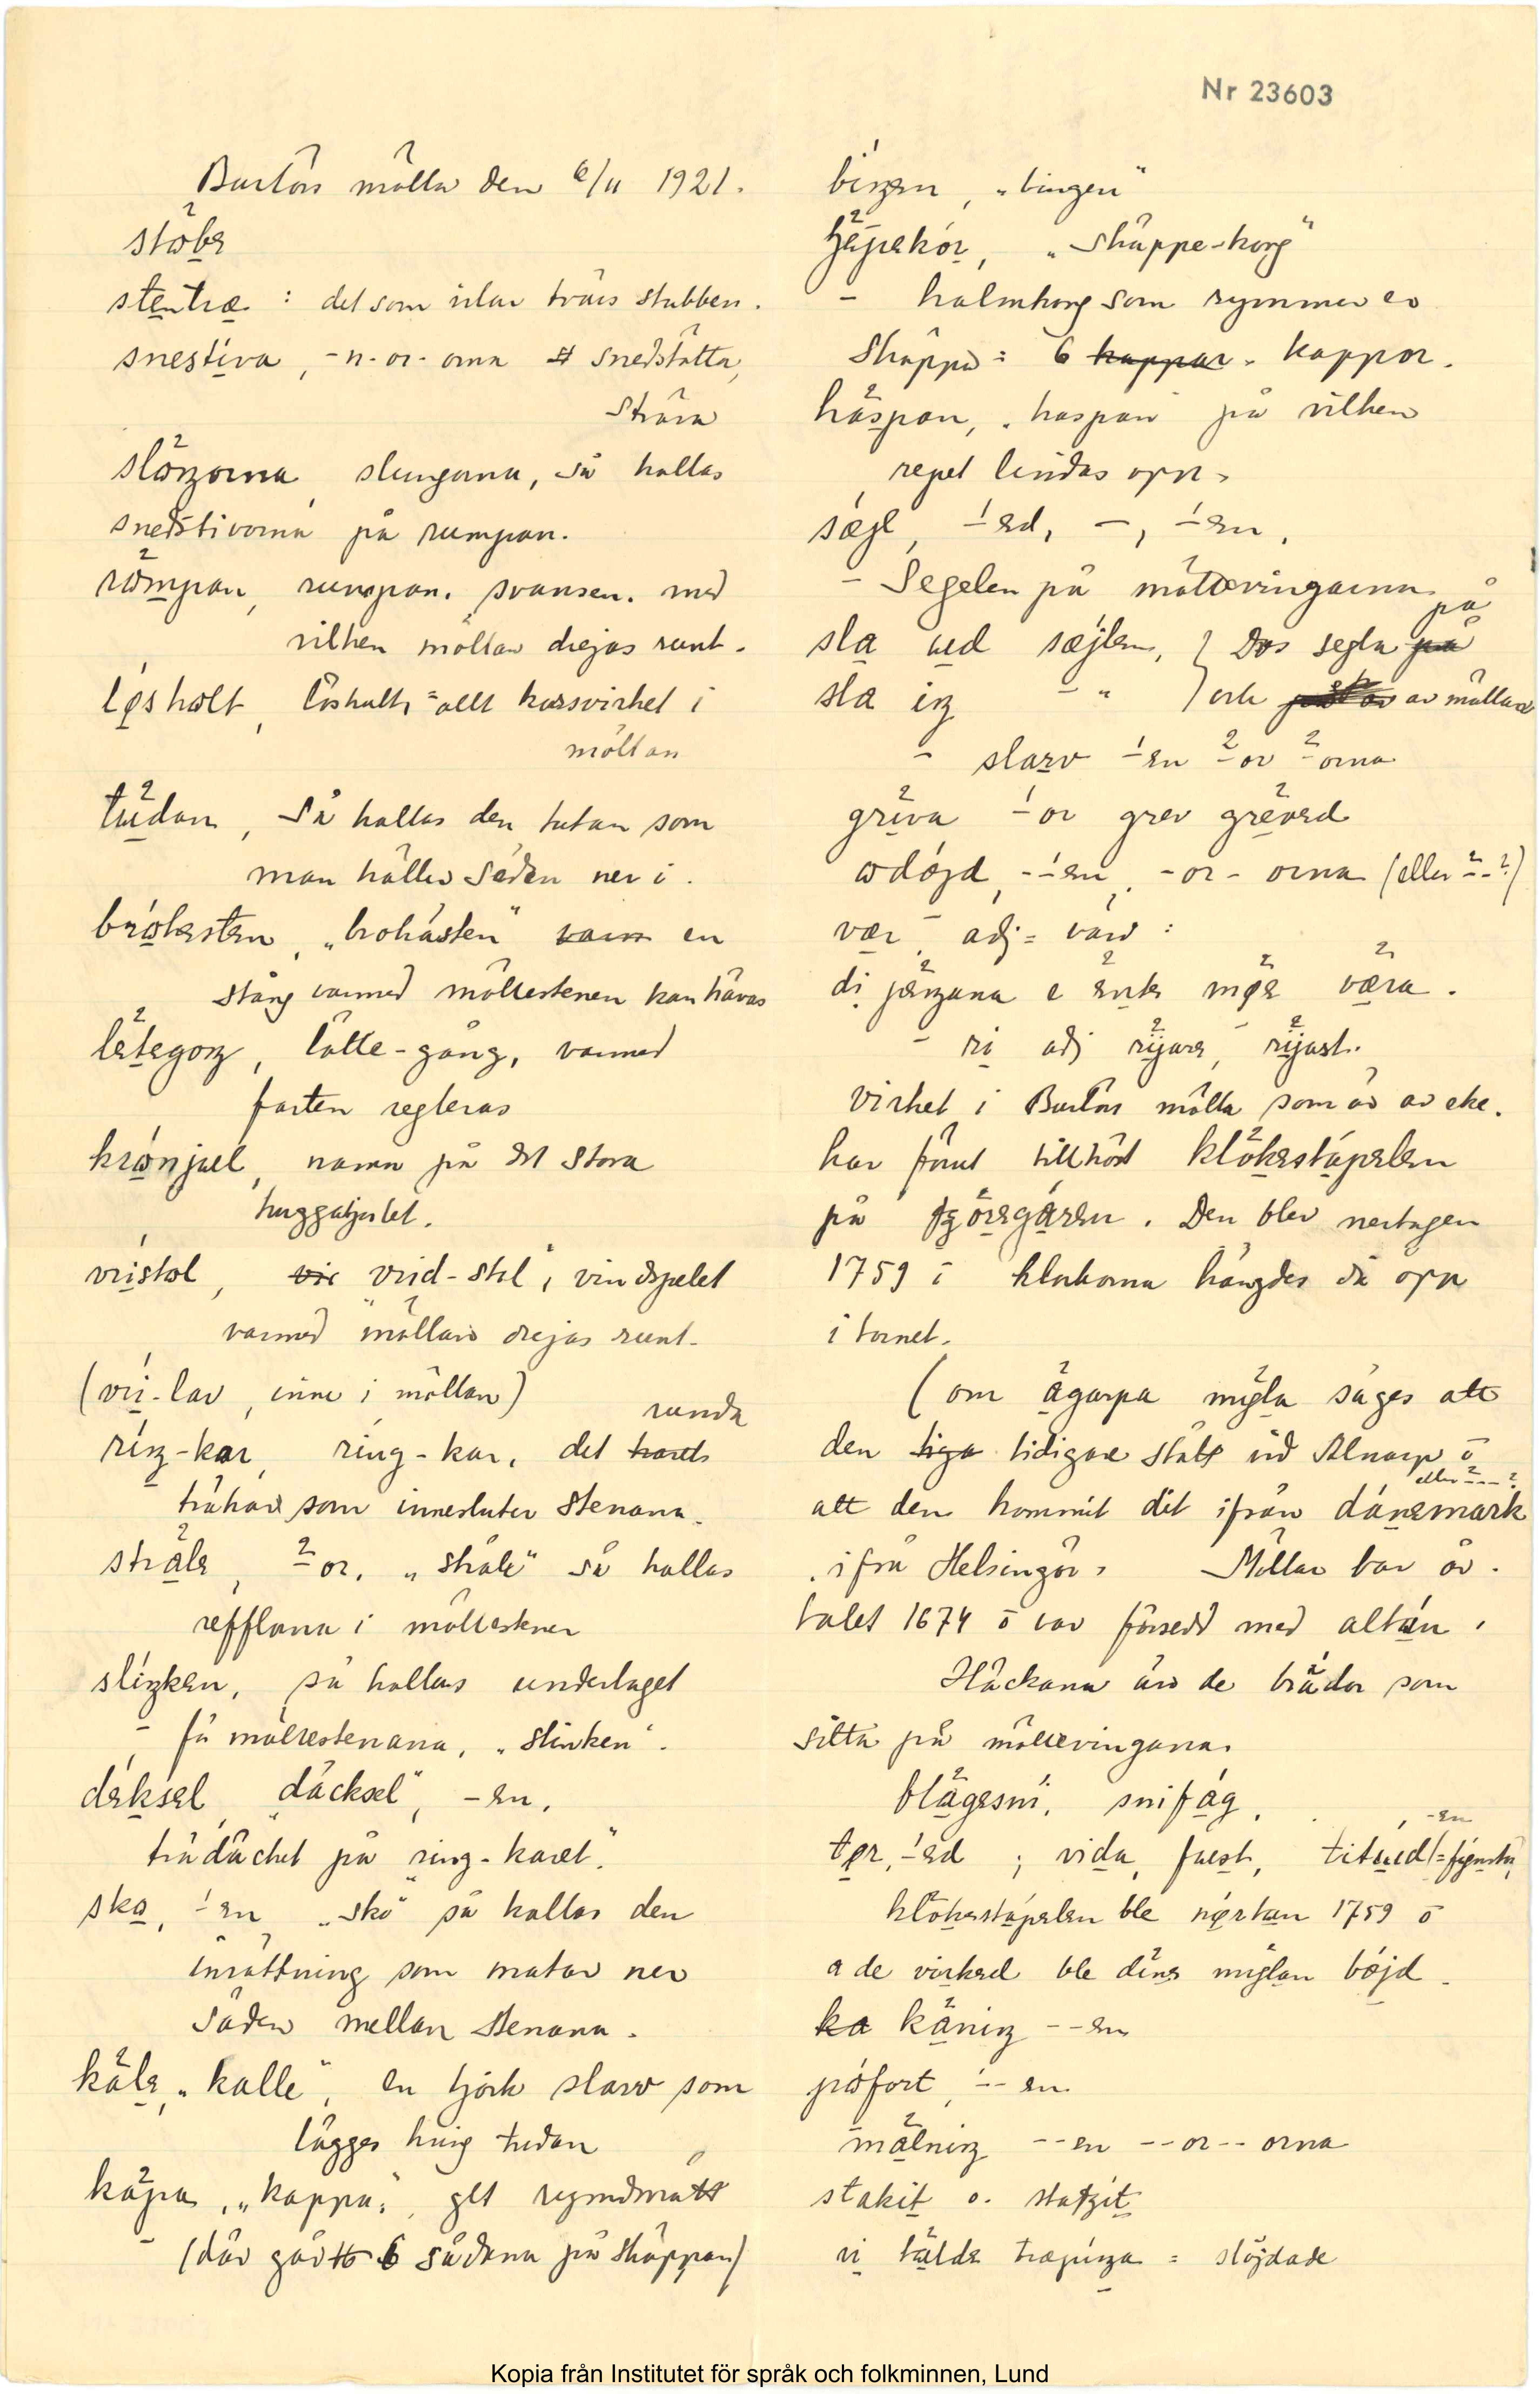 Nr 23603
Burlövs mölla den 6/11 1921.
stobe
stentræ : det som vilar tvärs stubben.
snestiva, -n-or-orna snedstötta,
Sträva
slöŋorna, slungorna, så kallas
snedstivorna på rumpan.
römpan, rumpan. svansen. med
vilken möllan drejas runt.
løsholt, löshult, = allt korsvirket i
möllan
tudan, så kallas den tutan som
man häller säden ner i.
brohesten, "brohästen" en
stång varmed möllestenen kan hävas
lætegoŋ, lätte-gång, varmed
farten regleras
kronjul, namn på det stora
kuggahjulet.
vristol, vrid-stol, vindspelet
varmed möllan drejas runt.
(vri-lav, inne i möllan)
runda
riŋ-kar, ring-kar, det
träkar som innesluter stenarna.
stråle, or, "stråle" så kallas
refflorna i möllestenen
sliŋken, så kallas underlaget
få möllestenarna, "slinken".
dæksel "däcksel", -en,
trädäcket på "ring-karet".
sko, -en "sko" så kallas den
inrättning som matar ner
säden mellan stenarna.
kale, "kalle", en tjock slarv som
lägges kring tudan
kapa, "kappa", gl rymdmått
(där gått 6 sådana på skäppan)
biŋen, "bingen"
"Skäppe-korg"
- halmkorg som rymmer en
Skäppa = 6 kappar. kappor.
haspan, "haspan" på vilken
repet lindas opp.
sæjl, -ed, -, -en,
- Segelen på möllevingarna
på
sla ved sæjlen, } Dos segla på
sla iŋ - " } och av möllan
- slarv -en -or -orna
greva -or grev greved
adojd, --en, -or- orna (eller - - ?)
vær adj = värd :
di pæŋana e ente moe væra.
- ri adj rijare, rijast.
virket i Burlövs mölla som är av eke.
har förut tillhört klökestapelen
på . Den blev nertagen
1759 i klockorna hängdes då opp
i tornet.
(om ågarpa mylla säges att
den tidigare stått vid Alnarp o
eller - - - ?
att den kommit dit ifrån danemark
ifrå Helsingör. Möllan bar år-
talet 1674 o var försedd med altan.
Häckarna äro de brädor som
sitta på möllevingarna.
blagesmi, snifag,
-en
tor, -ed ; vida, fuest, titued (= fönster,
klökestapelen ble nortan 1759 o
a de virked ble dene myllan bojd.
ka kaniŋ --en
pofort, -- en
målniŋ --en --or-- orna
stakit o. statzit
vi talde træpiŋa = slöjdade
Kopia från Institutet för språk och folkminnen, Lund